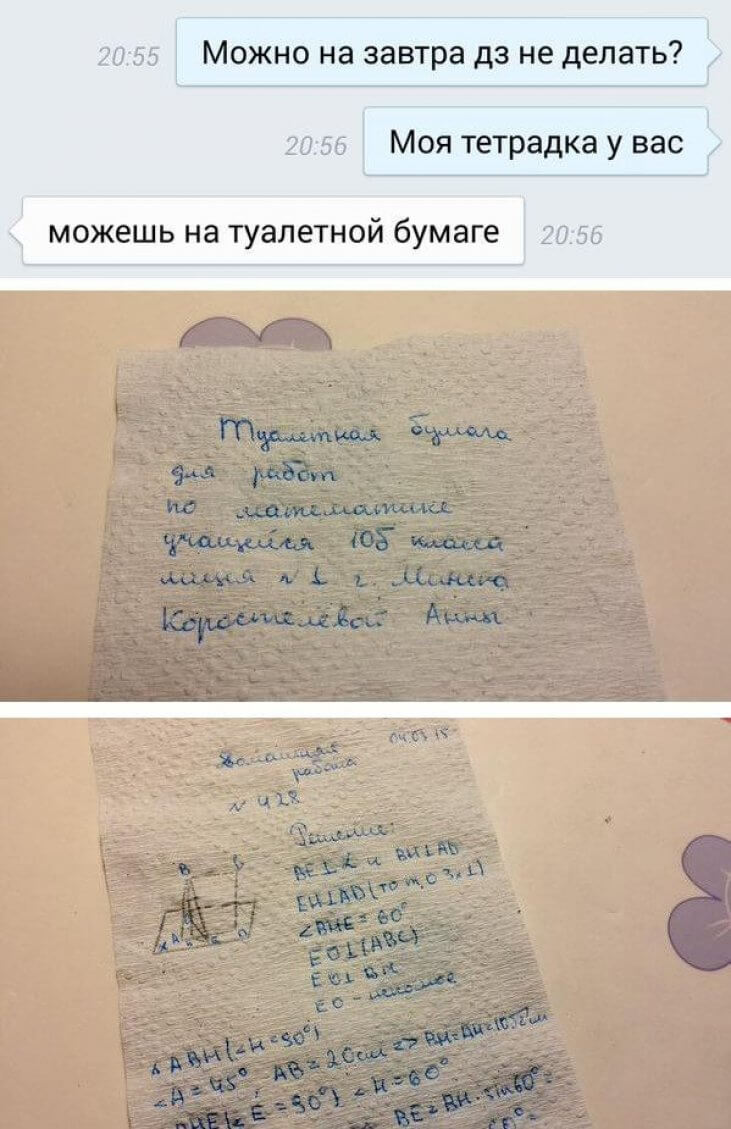 20:55 Можно на завтра дз не делать?
20:56 Моя тетрадка у вас
можешь на туалетной бумаге 20:56
Туалетная бумага
для работ
по математике
учащейся 10б класса
лицея №1 г. Минска
Коростелёвой Анны
Домашняя 04.03.15
работа
№ 428
Решение:
B C
BE⊥α и BH⊥AD
EH⊥AD (по т. о 3х⊥)
∠BHE = 60°
EO⊥(ABC)
EO⊥BH
EO - искомое
α A H E D
ABH (∠H = 90°)
∠A = 45°, AB = 20см => BH = AH = 10√2см
BHE (∠E = 90°) ∠H = 60°
BE = BH · sin60° =